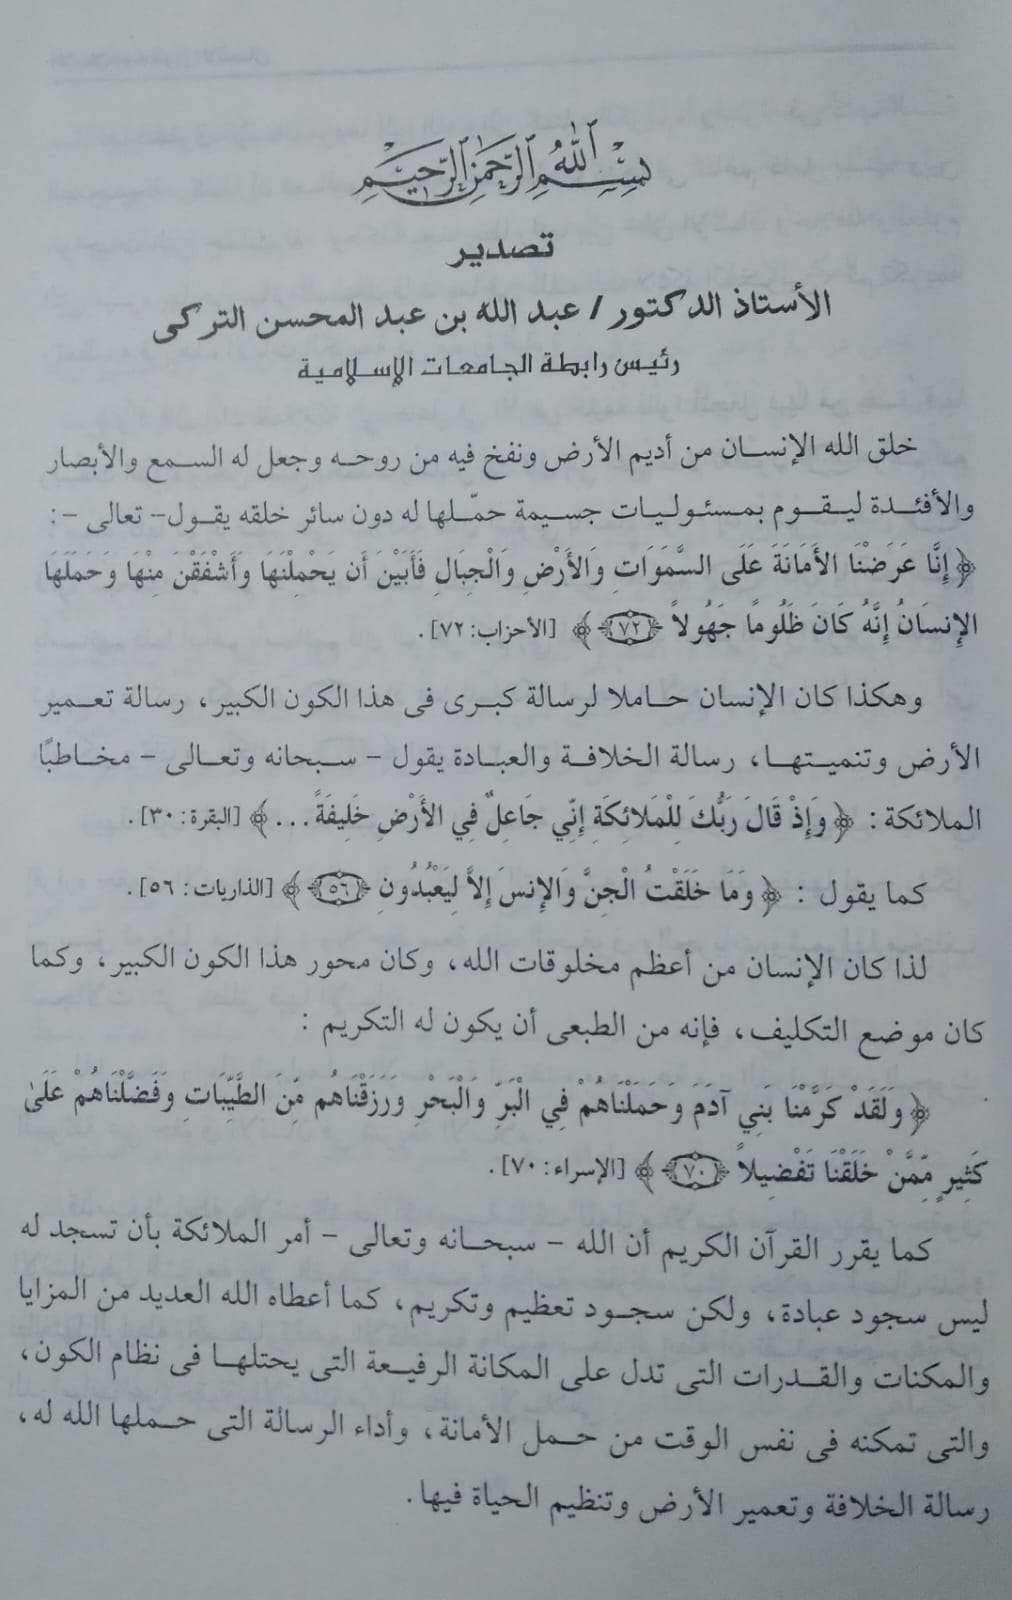 بسم الله الرحمن الرحيم
تصدير
الأستاذ الدكتور / عبد الله بن عبد المحسن التركى
رئيس رابطة الجامعات الإسلامية
خلق الله الإنسان من أديم الأرض ونفخ فيه من روحه وجعل له السمع والأبصار
والأفئدة ليقوم بمسئوليات جسيمة حمّلها له دون سائر خلقه يقول- تعالى -:
﴿ إِنَّا عَرَضْنَا الأَمَانَةَ عَلَى السَّمَوَاتِ وَالأَرْضِ وَالْجِبَالِ فَأَبَيْنَ أَن يَحْمِلْنَهَا وَأَشْفَقْنَ مِنْهَا وَحَمَلَهَا
الإِنسَانُ إِنَّهُ كَانَ ظَلُومًا جَهُولاً (٧٢) ﴾ [الأحزاب: ٧٢].
وهكذا كان الإنسان حاملا لرسالة كبرى فى هذا الكون الكبير، رسالة تعمير
الأرض وتنميتها، رسالة الخلافة والعبادة يقول - سبحانه وتعالى - مخاطبًا
الملائكة: ﴿ وَإِذْ قَالَ رَبُّكَ لِلْمَلائِكَةِ إِنِّي جَاعِلٌ فِي الأَرْضِ خَلِيفَةً... ﴾ [البقرة: ٣٠].
كما يقول : ﴿ وَمَا خَلَقْتُ الْجِنَّ وَالإِنسَ إِلاَّ لِيَعْبُدُونِ (٥٦) ﴾ [الذاريات: ٥٦].
لذا كان الإنسان من أعظم مخلوقات الله، وكان محور هذا الكون الكبير، وكما
كان موضع التكليف، فإنه من الطبعى أن يكون له التكريم :
﴿ وَلَقَدْ كَرَّمْنَا بَنِي آدَمَ وَحَمَلْنَاهُمْ فِي الْبَرِّ وَالْبَحْرِ وَرَزَقْنَاهُم مِّنَ الطَّيِّبَاتِ وَفَضَّلْنَاهُمْ عَلَىٰ
كَثِيرٍ مِّمَّنْ خَلَقْنَا تَفْضِيلاً (٧٠) ﴾ [الإسراء: ٧٠].
كما يقرر القرآن الكريم أن الله - سبحانه وتعالى - أمر الملائكة بأن تسجد له
ليس سجود عبادة، ولكن سجود تعظيم وتكريم، كما أعطاه الله العديد من المزايا
والمكنات والقدرات التى تدل على المكانة الرفيعة التى يحتلها فى نظام الكون،
والتى تمكنه فى نفس الوقت من حمل الأمانة، وأداء الرسالة التى حملها الله له،
رسالة الخلافة وتعمير الأرض وتنظيم الحياة فيها.